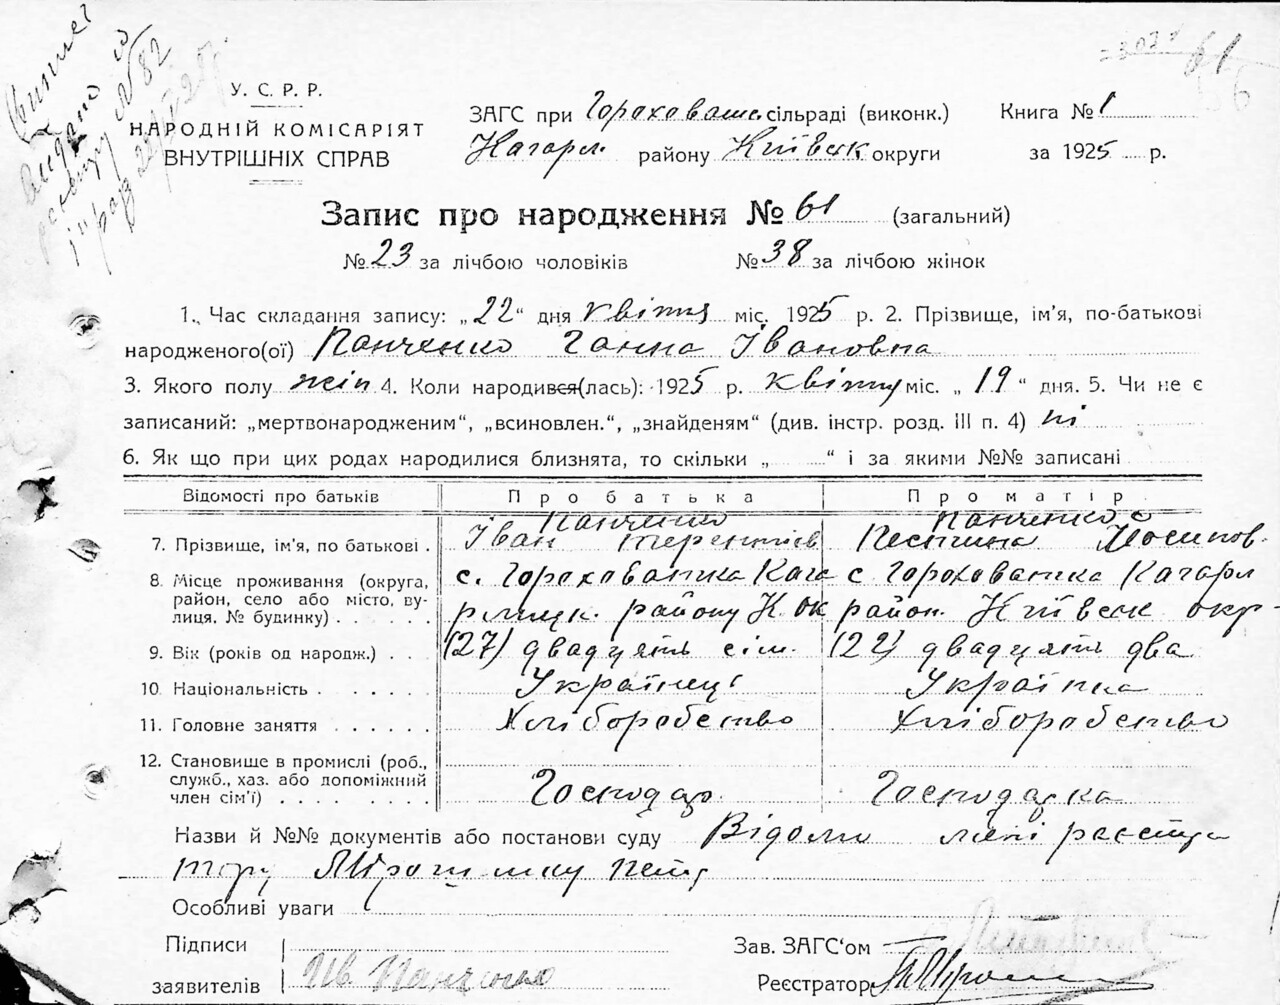 У. С. Р. Р.
НАРОДНІЙ КОМІСАРІЯТ
ВНУТРІШНІХ СПРАВ
ЗАГС при Гороховат. сільраді (виконк.)
Кагарл. району Київськ округи
Книга № 1
за 1925 р.
61
Запис про народження № 61 (загальний)
№ 23 за лічбою чоловіків № 38 за лічбою жінок
1. Час складання запису: „22“ дня квітня міс. 1925 р. 2. Прізвище, ім'я, по-батькові
народженого(ої) Панченко Ганна Івановна
3. Якого полу жін 4. Коли народився(лась): 1925 р. квітня міс. „19“ дня. 5. Чи не є
записаний: „мертвонародженим“, „всиновлен.“, „знайденям“ (див. інстр. розд. III п. 4) ні
6. Як що при цих родах народилися близнята, то скільки „ “ і за якими №№ записані
Відомості про батьків Про батька Про матір
Панченко Панченко
7. Прізвище, ім'я, по батькові . Іван Терентіїв Йосипов.
8. Місце проживання (округа, с. Гороховатка Кага с Гороховатка Кагарл
район, село або місто, ву- рлицьк. району К. ок район. Київськ окр-
лиця, № будинку)
9. Вік (років од народж.) . . (27) двадцять сім. (22) двадцять два
10. Національність Українець Українка
11. Головне заняття Хліборобство Хліборобство
12. Становище в промислі (роб.,
служб., хаз. або допоміжний
член сім'ї) Господар. Господарка
Назви й №№ документів або постанови суду Відомі мені реєстра
тору Мірошнику
Особливі уваги
Підписи Зав. ЗАГС'ом
заявителів Ів. Панченко Реєстратор